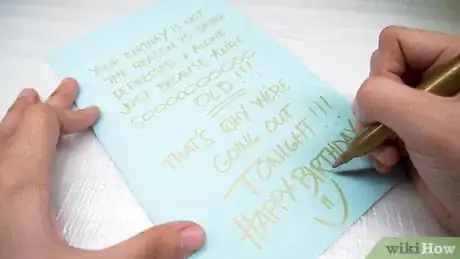 YOUR BIRTHDAY IS NOT
THE REASON TO DRINK
DEPRESSED & ALONE
JUST BECAUSE YOU'RE
SOOOOOOOOOOO
OLD!!!
THAT'S WHY WE'RE
GOING OUT
TONIGHT!!!
HAPPY BIRTHDAY
=)
wikiHow